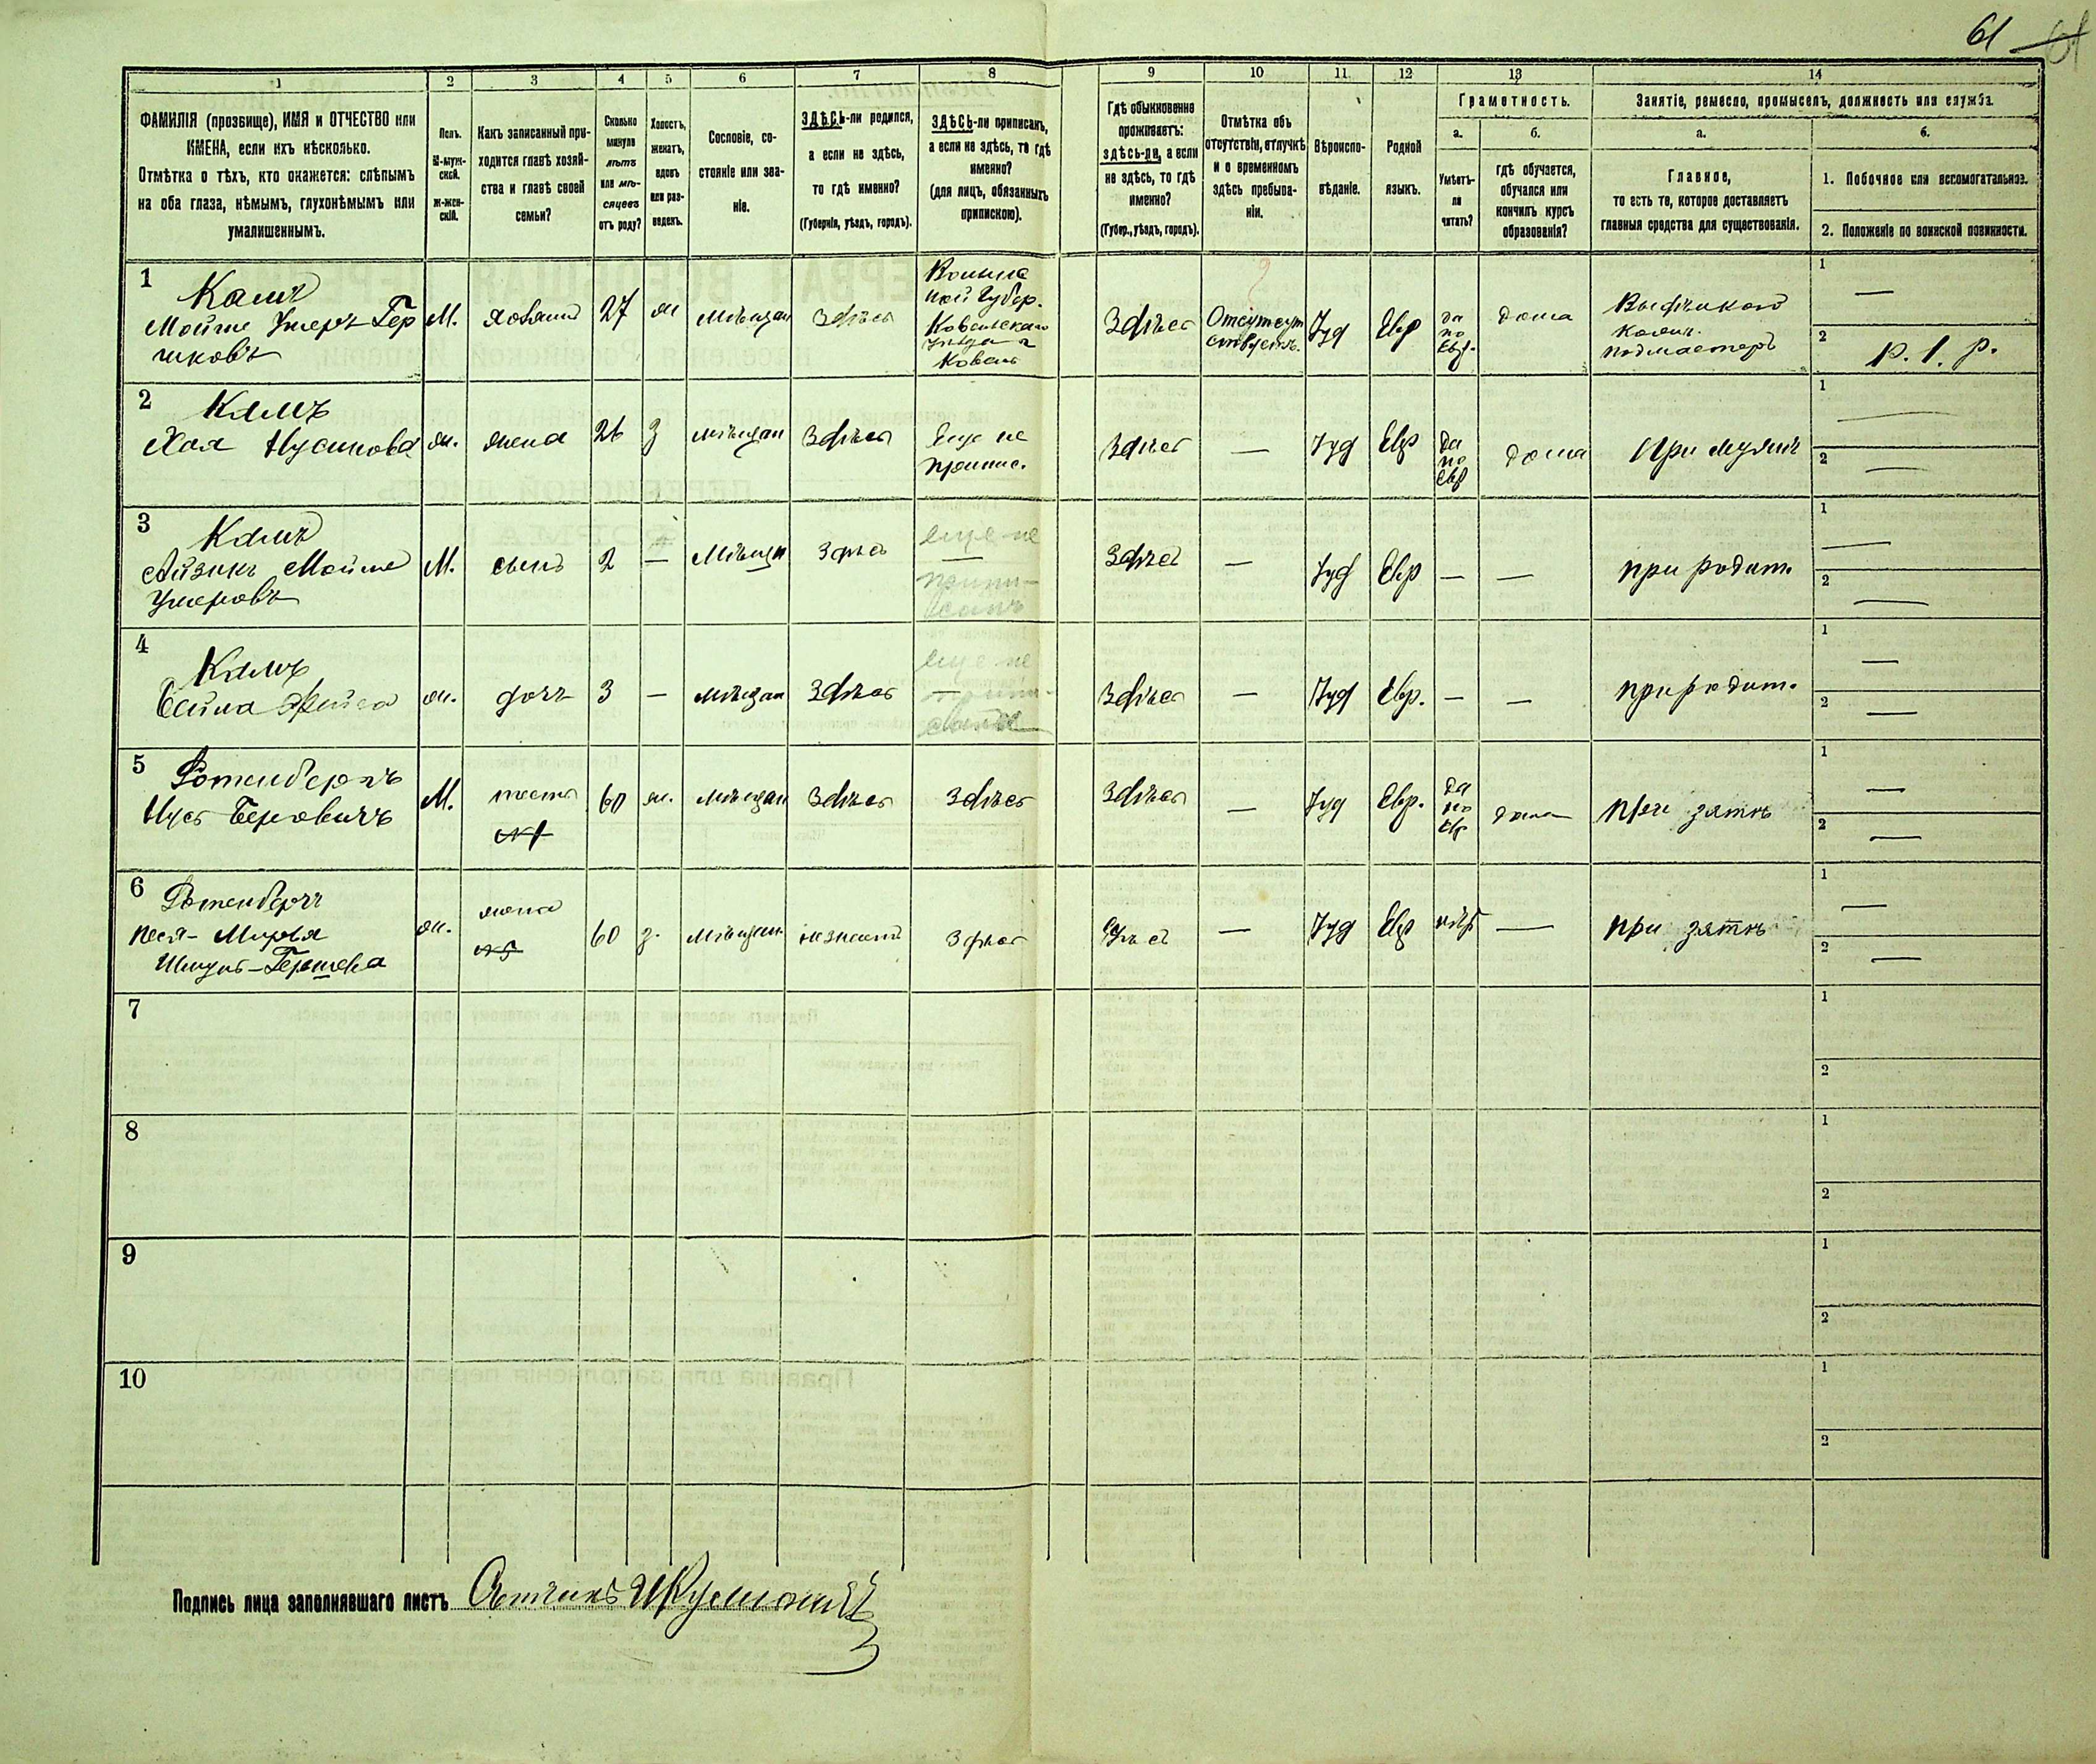 61
1
2
3
4
5
6
7
8
9
10
11
12
13
14
ФАМИЛІЯ (прозвище), ИМЯ и ОТЧЕСТВО или
ИМЕНА, если ихъ нѣсколько.
Отмѣтка о тѣхъ, кто окажется: слѣпымъ
на оба глаза, нѣмымъ, глухонѣмымъ или
умалишеннымъ.
Полъ.
М-муж-
ской.
Ж-жен-
скій.
Какъ записанный при-
ходится главѣ хозяй-
ства и главѣ своей
семьи?
Сколько
минуло
лѣтъ
или мѣ-
сяцевъ
отъ роду?
Холостъ,
женатъ,
вдовъ
или раз-
веденъ.
Сословіе, со-
стояніе или зва-
ніе.
ЗДѢСЬ-ли родился,
а если не здѣсь,
то гдѣ именно?
(Губернія, уѣздъ, городъ).
ЗДѢСЬ-ли приписанъ,
а если не здѣсь, то гдѣ
именно?
(для лицъ, обязанныхъ
припискою).
Гдѣ обыкновенно
проживаетъ:
здѣсь-ли, а если
не здѣсь, то гдѣ
именно?
(Губер., уѣздъ, городъ).
Отмѣтка объ
отсутствіи, отлучкѣ
и о временномъ
здѣсь пребыва-
ніи.
Вѣроиспо-
вѣданіе.
Родной
языкъ.
Грамотность.
а.
б.
Умѣетъ-
ли
читать?
гдѣ обучается,
обучался или
кончилъ курсъ
образованія?
Занятіе, ремесло, промыселъ, должность или служба.
а.
б.
Главное,
то есть то, которое доставляетъ
главныя средства для существованія.
1. Побочное или вспомогательное.
2. Положеніе по воинской повинности.
1
Мойше Умеръ-Гер
шковъ
М.
хозяинъ
27
ж
мѣщан
Здѣсь
Волын
ской Губер.
Ковельскаго
уѣзда г
Ковель
Здѣсь
Отсутст
ствуетъ.
Іуд
Евр
да
по
Евр.
дома
подмастеръ
1
—
2
р. 1. р.
2
Хая Нусинова
ж.
жена
26
з
мѣщан
Здѣсь
Еще не
припис.
Здѣсь
—
Іуд
Евр
да
по
Евр
дома
При мужѣ
1
—
2
—
3
Айзикъ Мойше
Умеровъ
М.
сынъ
2
—
Мѣщан
Здѣсь
еще не
припи-
санъ
Здѣсь
—
Іуд
Евр
—
—
при родит.
1
—
2
—
4
ж.
дочь
3
—
мѣщан
Здѣсь
еще не
Здѣсь
—
Іуд
Евр.
—
—
при родит.
1
—
2
—
5
Ротенбергъ
Нусъ Беровичъ
М.
тесть
№1
60
ж.
мѣщан
Здѣсь
Здѣсь
Здѣсь
—
Іуд
Евр.
да
по
Евр
дома
при зятѣ
1
—
2
—
6
Ротенбергъ
Песя-Мирья
Шмуль-Гершова
ж.
жена
№5
60
з.
мѣщан
не знаетъ
Здѣсь
Здѣсь
—
Іуд
Евр
нѣтъ
—
при зятѣ
1
—
2
—
7
1
2
8
1
2
9
1
2
10
1
2
Подпись лица заполнявшаго листъ